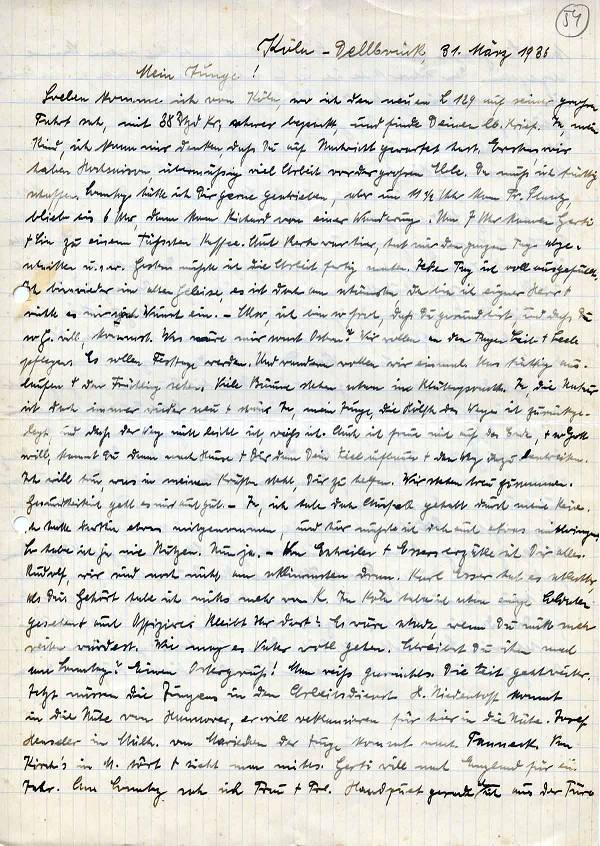 54
Köln - Dellbrück, 31. März 1936
Mein Junge!
Soeben komme ich von Köln, wo ich den neuen L 129 auf seiner großen
Fahrt sah, mit schwer bepackt, und finde Deinen lb. Brief. Ja, mein
Kind, ich kann mir denken daß Du auf Nachricht gewartet hast. Erstens wir
haben viel Arbeit vor der großen Da muß ich tüchtig
schaffen. Sonntag hätte ich Dir gerne geschrieben, aber um 11 1/2 Uhr kam Fr.
blieb bis 6 Uhr, dann kam Richard von einer Wanderung. Um 7 Uhr kamen Gerti
+ zu einem Kaffee. Auch war hier, hat mir den ganzen Tag
u.s.w. Gestern mußte ich die Arbeit fertig machen. Jeder Tag ist voll ausgefüllt.
Ich bin wieder im alten Geleise, es ist doch am schönsten, da bin ich eigner Herr +
nicht es mir Wunst ein. - Aber, ich bin so froh, daß Du gesund bist und daß Du
so G. will, kommst. Was wäre mir sonst Ostern? Wir wollen an den Tagen Leib + Seele
pflegen. Es sollen Festtage werden. Und wandern wollen wir einmal. Uns tüchtig aus-
laufen + den Frühling sehen. Viele Bäume stehen schon im Ja, die Natur
ist doch immer wieder neu + schön. Ja, mein Junge, die Hälfte des Weges ist zurückge-
legt, und daß der Weg nicht leicht ist, weiß ich. Auch ich freue mich auf das Ende, + so Gott
will, kommst Du dann nach Hause + Dir dann Dein Ziel + den Weg dazu
Ich will tun, was in meinen Kräften steht, Dir zu helfen. Wir stehen treu zusammen.
Gesundheitlich geht es mir gut. - Ja, ich habe doch gehabt durch meine Reise.
Ich hatte etwas mitgenommen, und hier mußte ich doch auch etwas mitbringen.
So habe ich ja nie Nutzen. Nun ja. - Von + Essers erzähle ich Dir alles.
Rudolf, wir sind noch nicht am schlimmsten dran. Karl Esser hat es schlechter,
als Du. Gehört habe ich nichts mehr von K. In Köln habe ich schon einige
gesehen + auch Offiziere. Bleibt Ihr dort? Es wäre schade wenn Du nicht mehr
reiten würdest. Wie mag es Vater wohl gehen. Schreibst Du ihm mal
am Sonntag? Einen Ostergruß! Man weiß gar nichts. Die Zeit geht weiter.
Jetzt müssen die Jungens in den Arbeitsdienst. H. Niedenhoff kommt
in die Nähe von Hannover, er will reklamieren für hier in die Nähe. Josef
Henseler in Mülh. von der Junge kommt nach Von
Kirch's in M. hört + sieht man nichts. Gerti will nach England für ein
Jahr. Am Sonntag sah ich Frau + Frl. gerade aus der Türe